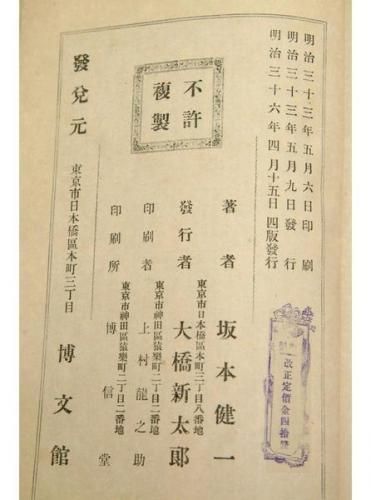 明治三十三年五月六日印刷
明治三十三年五月九日發行
明治三十六年四月十五日四版發行
改正定價金四拾錢
不許複製
著者 坂本健一
東京市日本橋區本町三丁目八番地
發行者 大橋新太郎
東京市神田區猿樂町二丁目二番地
印刷者 上村龍之助
東京市神田區猿樂町二丁目二番地
印刷所 博信堂
發兌元 東京市日本橋區本町三丁目 博文館